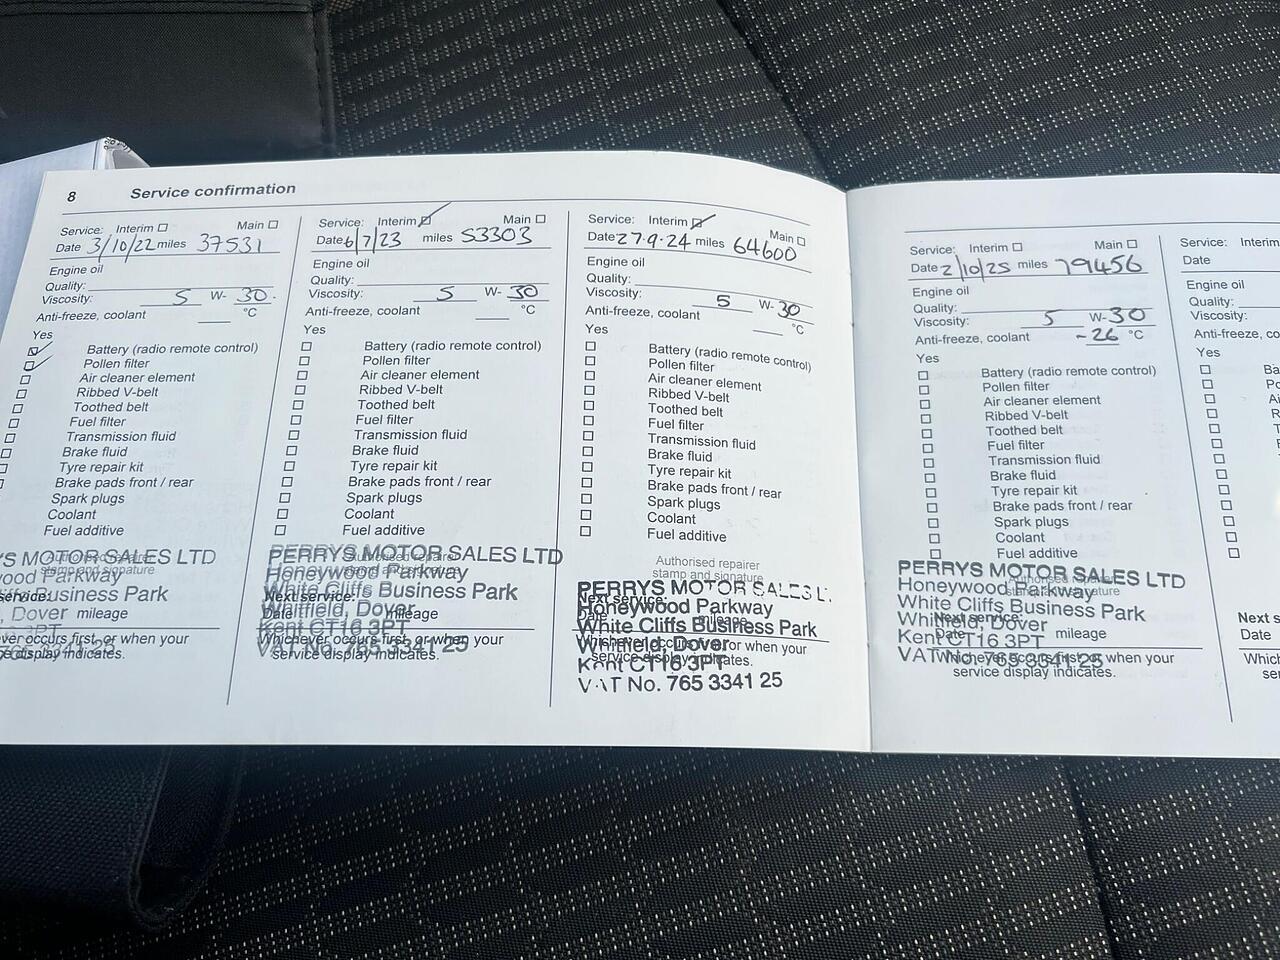 8 Service confirmation
Service: Interim Main
Date 3/10/22 miles 37531
Engine oil
Quality:
Viscosity: 5 W- 30.
Anti-freeze, coolant °C
Yes
Battery (radio remote control)
Pollen filter
Air cleaner element
Ribbed V-belt
Toothed belt
Fuel filter
Transmission fluid
Brake fluid
Tyre repair kit
Brake pads front / rear
Spark plugs
Coolant
Fuel additive
Authorised repairer
stamp and signature
YS MOTOR SALES LTD
wood Parkway
Business Park
service:
, Dover mileage
3PT
ver occurs first, or when your
765 3341 25
e display indicates.
Service: Interim Main
Date 6/7/23 miles 53303
Engine oil
Quality:
Viscosity: 5 W- 30
Anti-freeze, coolant °C
Yes
Battery (radio remote control)
Pollen filter
Air cleaner element
Ribbed V-belt
Toothed belt
Fuel filter
Transmission fluid
Brake fluid
Tyre repair kit
Brake pads front / rear
Spark plugs
Coolant
Fuel additive
Authorised repairer
stamp and signature
PERRYS MOTOR SALES LTD
Honeywood Parkway
White Cliffs Business Park
Next service:
Whitfield, Dover
Date mileage
Kent CT16 3PT
Whichever occurs first, or when your
VAT No. 765 3341 25
service display indicates.
Service: Interim Main
Date 27.9.24 miles 64600
Engine oil
Quality:
Viscosity: 5 W- 30
Anti-freeze, coolant °C
Yes
Battery (radio remote control)
Pollen filter
Air cleaner element
Ribbed V-belt
Toothed belt
Fuel filter
Transmission fluid
Brake fluid
Tyre repair kit
Brake pads front / rear
Spark plugs
Coolant
Fuel additive
Authorised repairer
stamp and signature
PERRYS MOTOR SALES L
Next service:
Honeywood Parkway
Date mileage
White Cliffs Business Park
Whichever occurs first, or when your
Whitfield, Dover
service display indicates.
Kent CT16 3PT
VAT No. 765 3341 25
Service: Interim Main
Date 2/10/25 miles 79456
Engine oil
Quality:
Viscosity: 5 W- 30
Anti-freeze, coolant -26 °C
Yes
Battery (radio remote control)
Pollen filter
Air cleaner element
Ribbed V-belt
Toothed belt
Fuel filter
Transmission fluid
Brake fluid
Tyre repair kit
Brake pads front / rear
Spark plugs
Coolant
Fuel additive
Authorised repairer
stamp and signature
PERRYS MOTOR SALES LTD
Honeywood Parkway
White Cliffs Business Park
Next service:
Whitfield, Dover
Date mileage
Kent CT16 3PT
Whichever occurs first, or when your
VAT No. 765 3341 25
service display indicates.
Service: Interim
Date
Engine oil
Quality:
Viscosity:
Anti-freeze, c
Yes
Ba
Po
Ai
Ri
T
F
Next s
Date
Which
ser